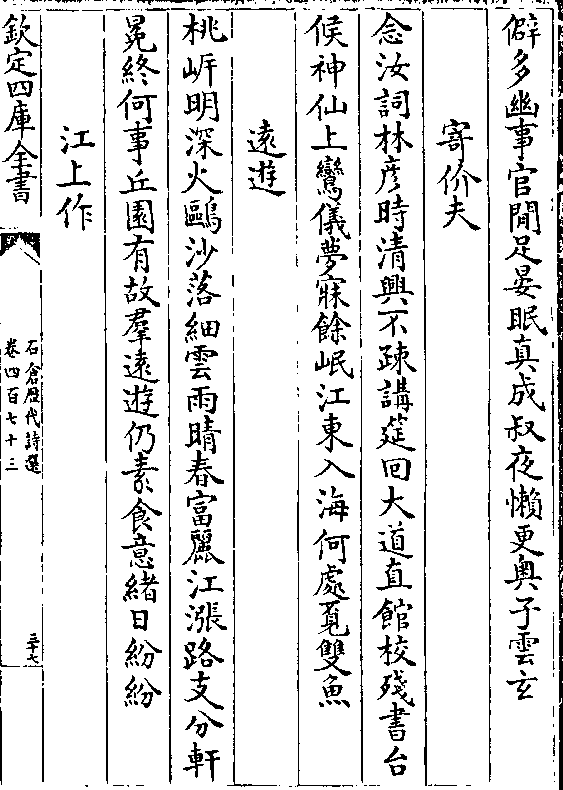 僻多幽事官閒足晏眠真成叔夜懶更與子雲玄
寄价夫
念汝詞林彦時清興不疎講筵回大道直館校殘書台
候神仙上鸞儀夢寐餘岷江東入海何處覔雙魚
遠遊
桃㟁明深火鷗沙落細雲雨晴春富麗江漲路支分軒
冕終何事丘園有故羣遠遊仍素食意緒日紛紛
江上作
欽定四庫全書
石倉歴代詩選
卷四百七十三
三十七